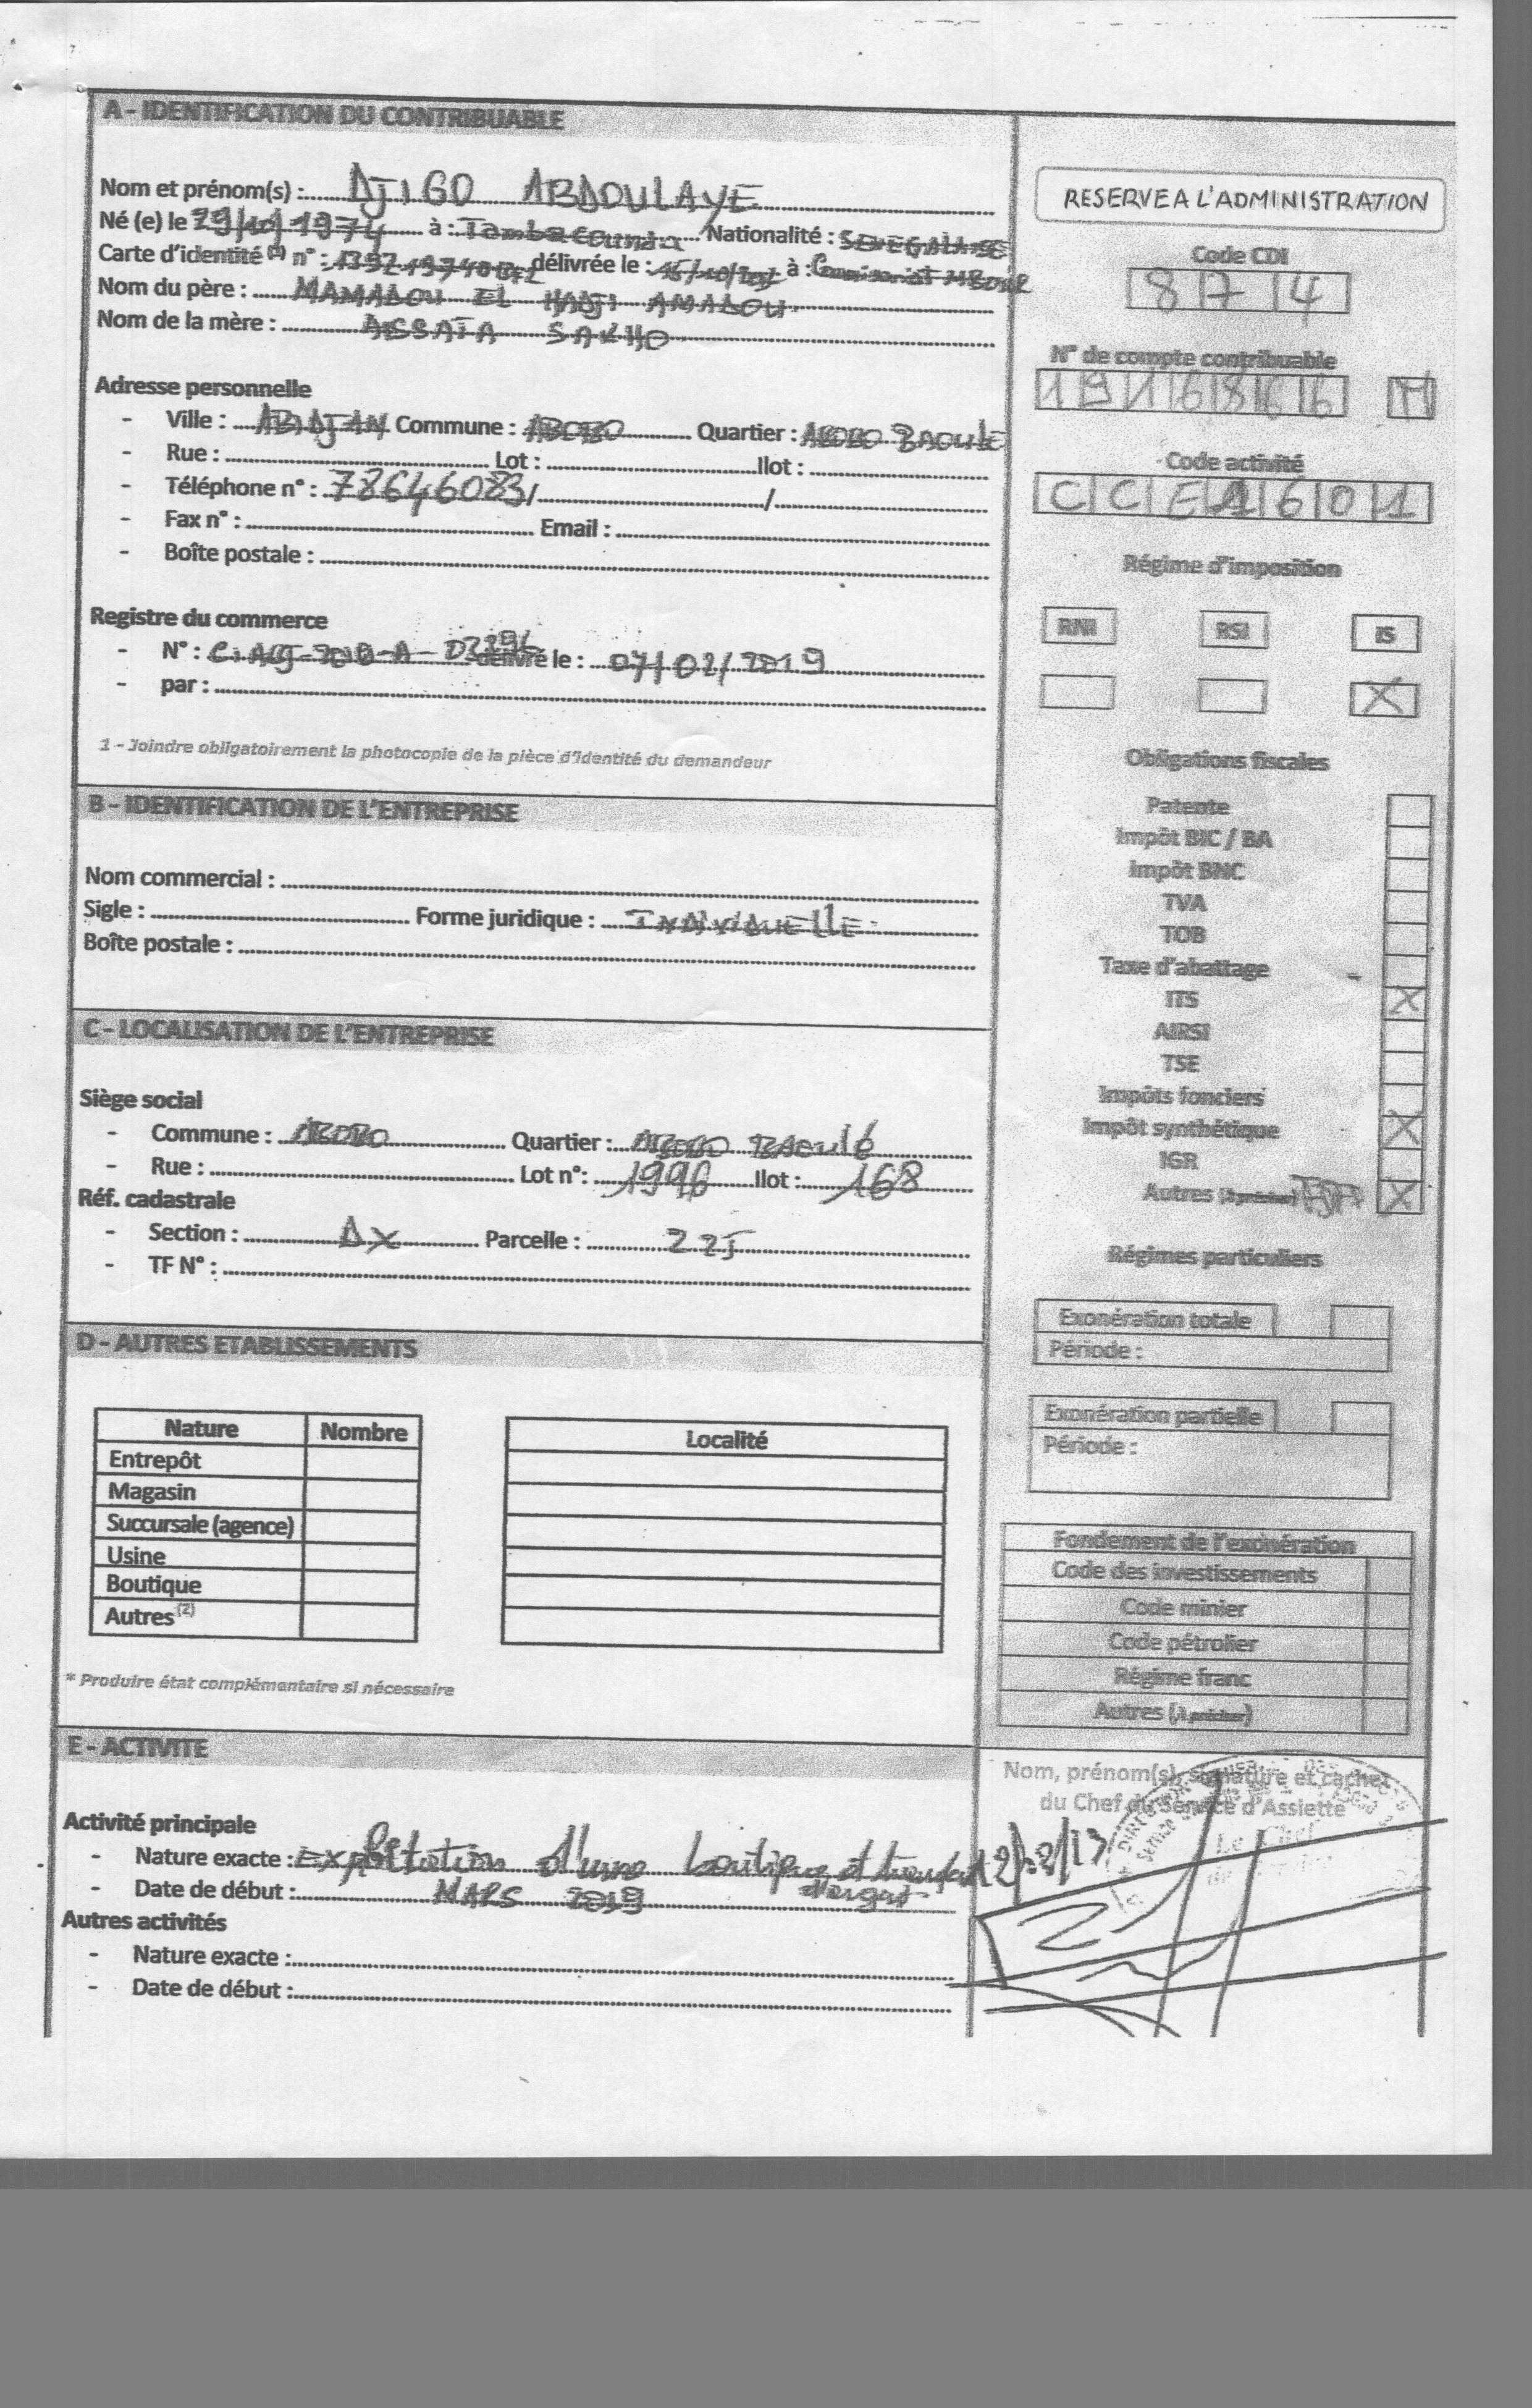 A - IDENTIFICATION DU CONTRIBUABLE
Nom et prénom(s) : DJIGO ABDOULAYE
Né (e) le 29/10/1974 à : Tambacounda Nationalité : SENEGALAISE
Carte d'identité (1) n° : délivrée le : à : Commissariat MBOUR
Nom du père : MAMADOU EL HADJI AMADOU
Nom de la mère : ASSATA SAKHO
Adresse personnelle
- Ville : ABIDJAN Commune : ABOBO Quartier : ABOBO BAOULE
- Rue : Lot : Ilot :
- Téléphone n° : 78646083 / /
- Fax n° : Email :
- Boîte postale :
Registre du commerce
- N° : délivré le : 07/02/2019
- par :
1 - Joindre obligatoirement la photocopie de la pièce d'identité du demandeur
B - IDENTIFICATION DE L'ENTREPRISE
Nom commercial :
Sigle : Forme juridique : INDIVIDUELLE
Boîte postale :
C - LOCALISATION DE L'ENTREPRISE
Siège social
- Commune : ABOBO Quartier : ABOBO BAOULé
- Rue : Lot n°: 1996 Ilot : 168
Réf. cadastrale
- Section : DX Parcelle :
- TF N° :
D - AUTRES ETABLISSEMENTS
Nature Nombre Localité
Entrepôt
Magasin
Succursale (agence)
Usine
Boutique
Autres (2)
* Produire état complémentaire si nécessaire
E - ACTIVITE
Activité principale
- Nature exacte : Exploitation d'une boutique et transfert
d'argent
- Date de début : MARS 2019
Autres activités
- Nature exacte :
- Date de début :
RESERVE A L'ADMINISTRATION
Code CDI
8 7 4
N° de compte contribuable
1 9 1 6 8 6 6 M
Code activité
C C E 1 6 0 1
Régime d'imposition
RNI RSI IS
X
Obligations fiscales
Patente
Impôt BIC / BA
Impôt BNC
TVA
TOB
Taxe d'abattage
ITS X
AIRSI
TSE
Impôts fonciers
Impôt synthétique X
IGR
Autres (à préciser) X
Régimes particuliers
Exonération totale
Période :
Exonération partielle
Période :
Fondement de l'exonération
Code des investissements
Code minier
Code pétrolier
Régime franc
Autres (à préciser)
Nom, prénom(s), signature et cachet
du Chef du Service d'Assiette
Le Chef